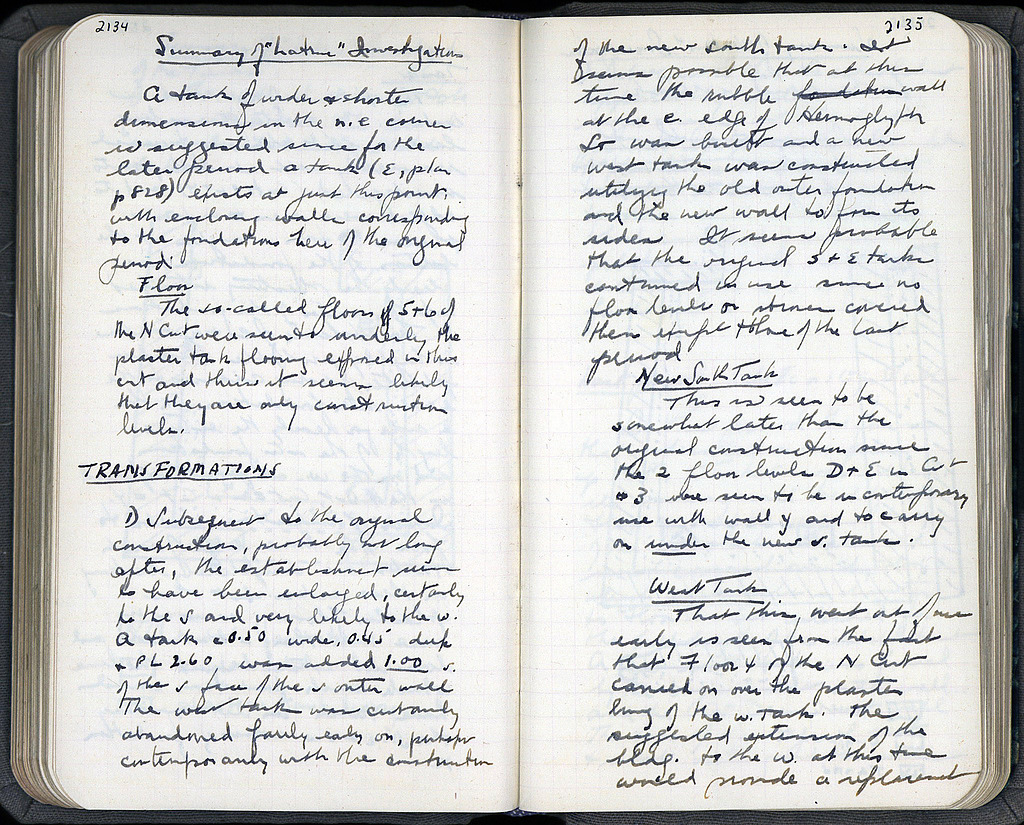 2134
Summary of "Latrine" Investigations
A tank of wider & shorter
dimensions in the n.e corner
is suggested since for the
later period a tank (E, plan
p 828) exists at just this point,
with enclosing walls corresponding
to the foundations here of the original
period.
Floor
The so-called floors of 5+6 of
the N Cut were seen to underly the
plaster tank flooring exposed in this
cut and thus it seems likely
that they are only construction
levels.
TRANSFORMATIONS
1) Subsequent to the original
construction, probably not long
after, the establishment seems
to have been enlarged, certainly
to the S and very likely to the w.
A tank c 0.50 wide, 0.45 deep
& PL 2.60, was added 1.00 s.
of the s face of the s outer wall
The west tank was certainly
abandoned fairly early on, perhaps
contemporarily with the construction
2135
of the new south tank. It
seems possible that at this
time the rubble foundation wall
at the e. edge of Hermoglyph
St was built and a new
west tank was constructed
utilizing the old outer foundation
and the new wall to form its
sides. It seems probable
that the original S + E tanks
continued in use since no
floor levels or stones covered
them except those of the last
period
New South Tank
This is seen to be
somewhat later than the
original construction since
the 2 floor levels D + E in Cut
#3 were seen to be in contemporary
use with wall y and to carry
on under the new s. tank.
West Tank
That this went out of use
early is seen from the fact
that Floor 4 of the N Cut
carried on over the plaster
lining of the w. Tank. The
suggested extension of the
bldg. to the w. at this time
would provide a replacement